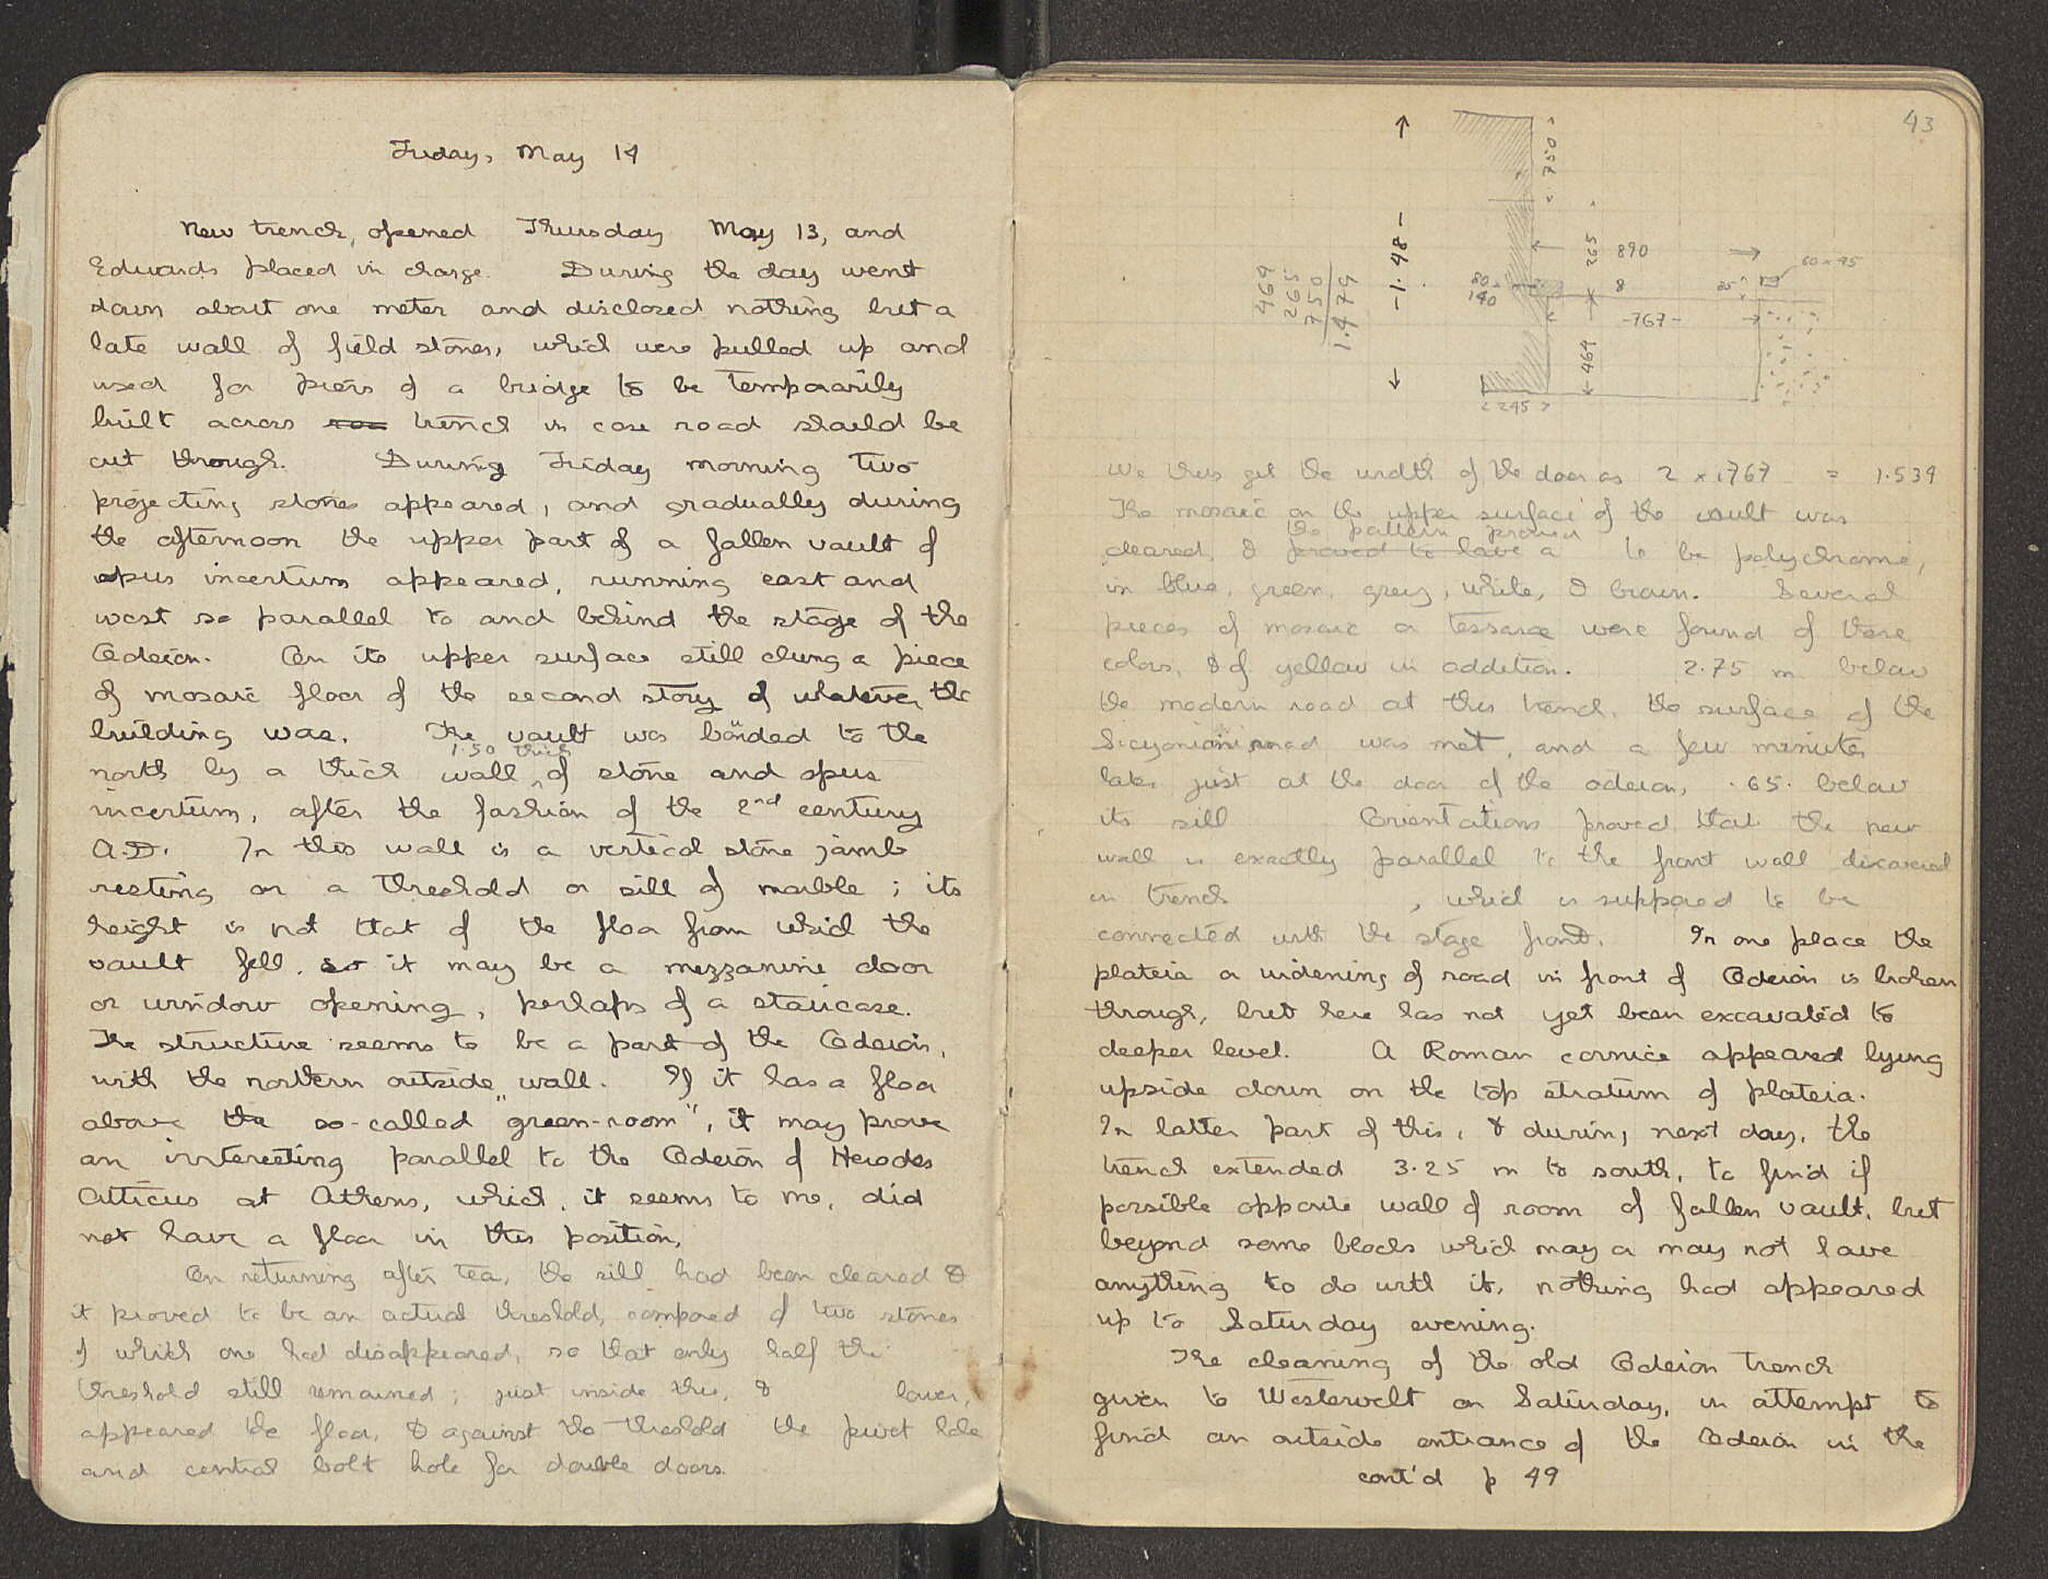 Friday, May 14
New trench, opened Thursday May 13, and
Edwards placed in charge. During the day went
down about one meter and disclosed nothing but a
late wall of field stones, which were pulled up and
used for piers of a bridge to be temporarily
built across trench in case road should be
cut through. During Friday morning two
projecting stones appeared, and gradually during
the afternoon the upper part of a fallen vault of
opus incertum appeared, running east and
west so parallel to and behind the stage of the
Odeion. On its upper surface still clung a piece
of mosaic floor of the second story of whatever the
building was. The vault was bonded to the
north by a thick wall 1.50 thick of stone and opus
incertum, after the fashion of the 2nd century
A.D. In this wall is a vertical stone jamb
resting on a threshold or sill of marble; its
height is not that of the floor from which the
vault fell, so it may be a mezzanine door
or window opening, perhaps of a staircase.
The structure seems to be a part of the Odeion,
with the northern outside wall. If it has a floor
above the so-called "green-room", it may prove
an interesting parallel to the Odeion of Herodes
Atticus at Athens, which, it seems to me, did
not have a floor in this position.
On returning after tea, the sill had been cleared &
it proved to be an actual threshold, composed of two stones
of which one had disappeared, so that only half the
threshold still remained; just inside this, & lower,
appeared the floor, & against the threshold the pivot hole
and central bolt hole for double doors.
43
750
1.48
265
890
60 x 45
469
265
750
1.479
80
140
8
35
767
464
245
We thus get the width of the door as 2 x .767 = 1.534
The mosaic on the upper surface of the vault was
the pattern proved
cleared, & proved to have a to be polychrome,
in blue, green, grey, white, & brown. Several
pieces of mosaic or tesserae were found of these
colors, & of yellow in addition. 2.75 m below
the modern road at this trench, the surface of the
Sicyonian road was met, and a few minutes
later just at the door of the odeion, .65 below
its sill Orientations proved that the new
wall is exactly parallel to the front wall discovered
in trench , which is supposed to be
connected with the stage front. In one place the
plateia or widening of road in front of Odeion is broken
through, but here has not yet been excavated to
deeper level. A Roman cornice appeared lying
upside down on the top stratum of plateia.
In latter part of this, & during next day, the
trench extended 3.25 m to south, to find if
possible opposite wall of room of fallen vault, but
beyond some blocks which may or may not have
anything to do with it, nothing had appeared
up to Saturday evening.
The cleaning of the old Odeion trench
given to Westervelt on Saturday, in attempt to
find an outside entrance of the Odeion in the
cont'd p 49